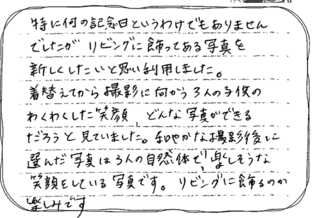 特に何の記念日というわけでもありません
でしたが リビングに飾ってある写真を
新しくしたいと思い利用しました。
着替えてから撮影に向かう3人の子供の
わくわくした笑顔、どんな写真ができる
だろうと見ていました。和やかな撮影後に
選んだ写真は3人の自然体で、楽しそうな
笑顔をしている写真です。リビングに飾るのが
楽しみです